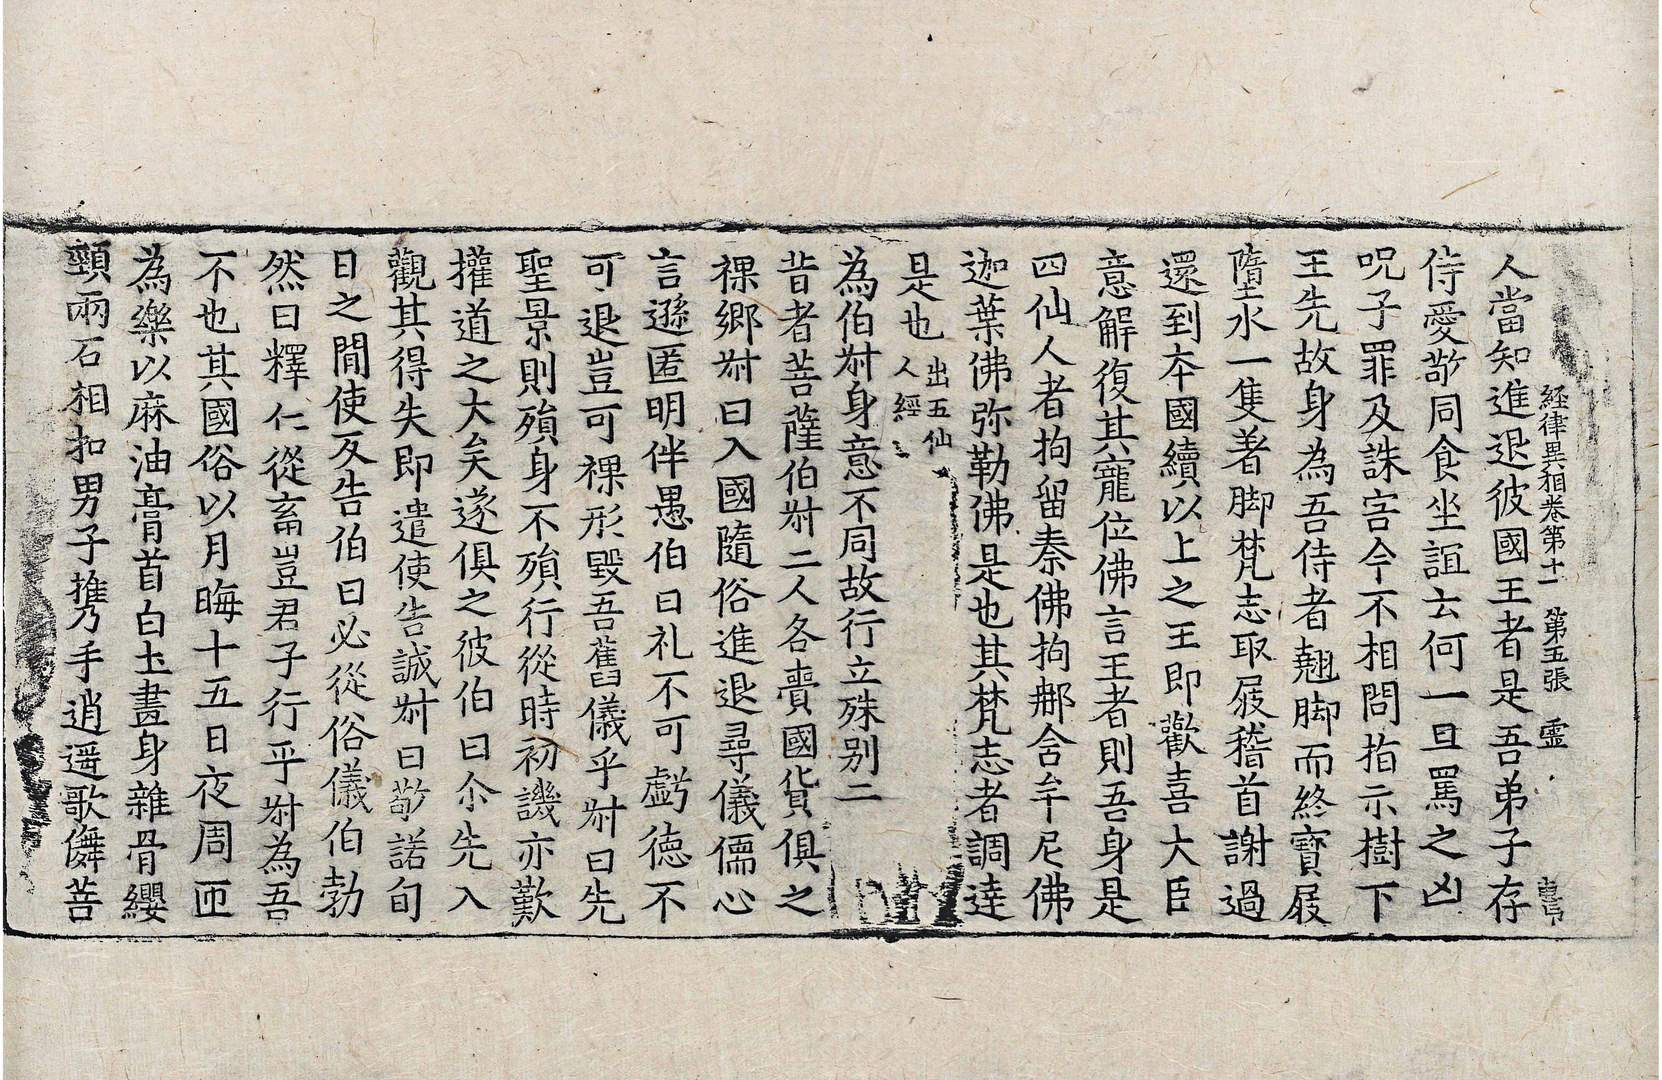 経律異相卷第十一 第五張 霊
人當知進退彼國王者是吾弟子存
侍愛敬同食坐誼云何一旦罵之凶
呪子罪及誅害今不相問指示樹下
王先故身為吾侍者翹脚而終寶屐
墮水一隻著脚梵志取屐稽首謝過
還到本國續以上之王即歡喜大臣
意解復其寵位佛言王者則吾身是
四仙人者拘留秦佛拘那舍牟尼佛
迦葉佛弥勒佛是也其梵志者調達
是也出五仙人經
為伯叔身意不同故行立殊別二
昔者菩薩伯叔二人各賷國貨俱之
裸鄉叔曰入國隨俗進退尋儀儒心
言遜匿明伴愚伯曰礼不可虧徳不
可退豈可裸形毀吾舊儀乎叔曰先
聖景則殞身不殞行從時初譏亦歎
權道之大矣遂俱之彼伯曰尒先入
觀其得失即遣使告誠叔曰敬諾旬
日之間使反告伯曰必從俗儀伯勃
然曰釋仁從畜豈君子行乎叔為吾
不也其國俗以月晦十五日夜周匝
為樂以麻油膏首白土畫身雜骨纓
頸兩石相扣男子攜手逍遥歌儛菩